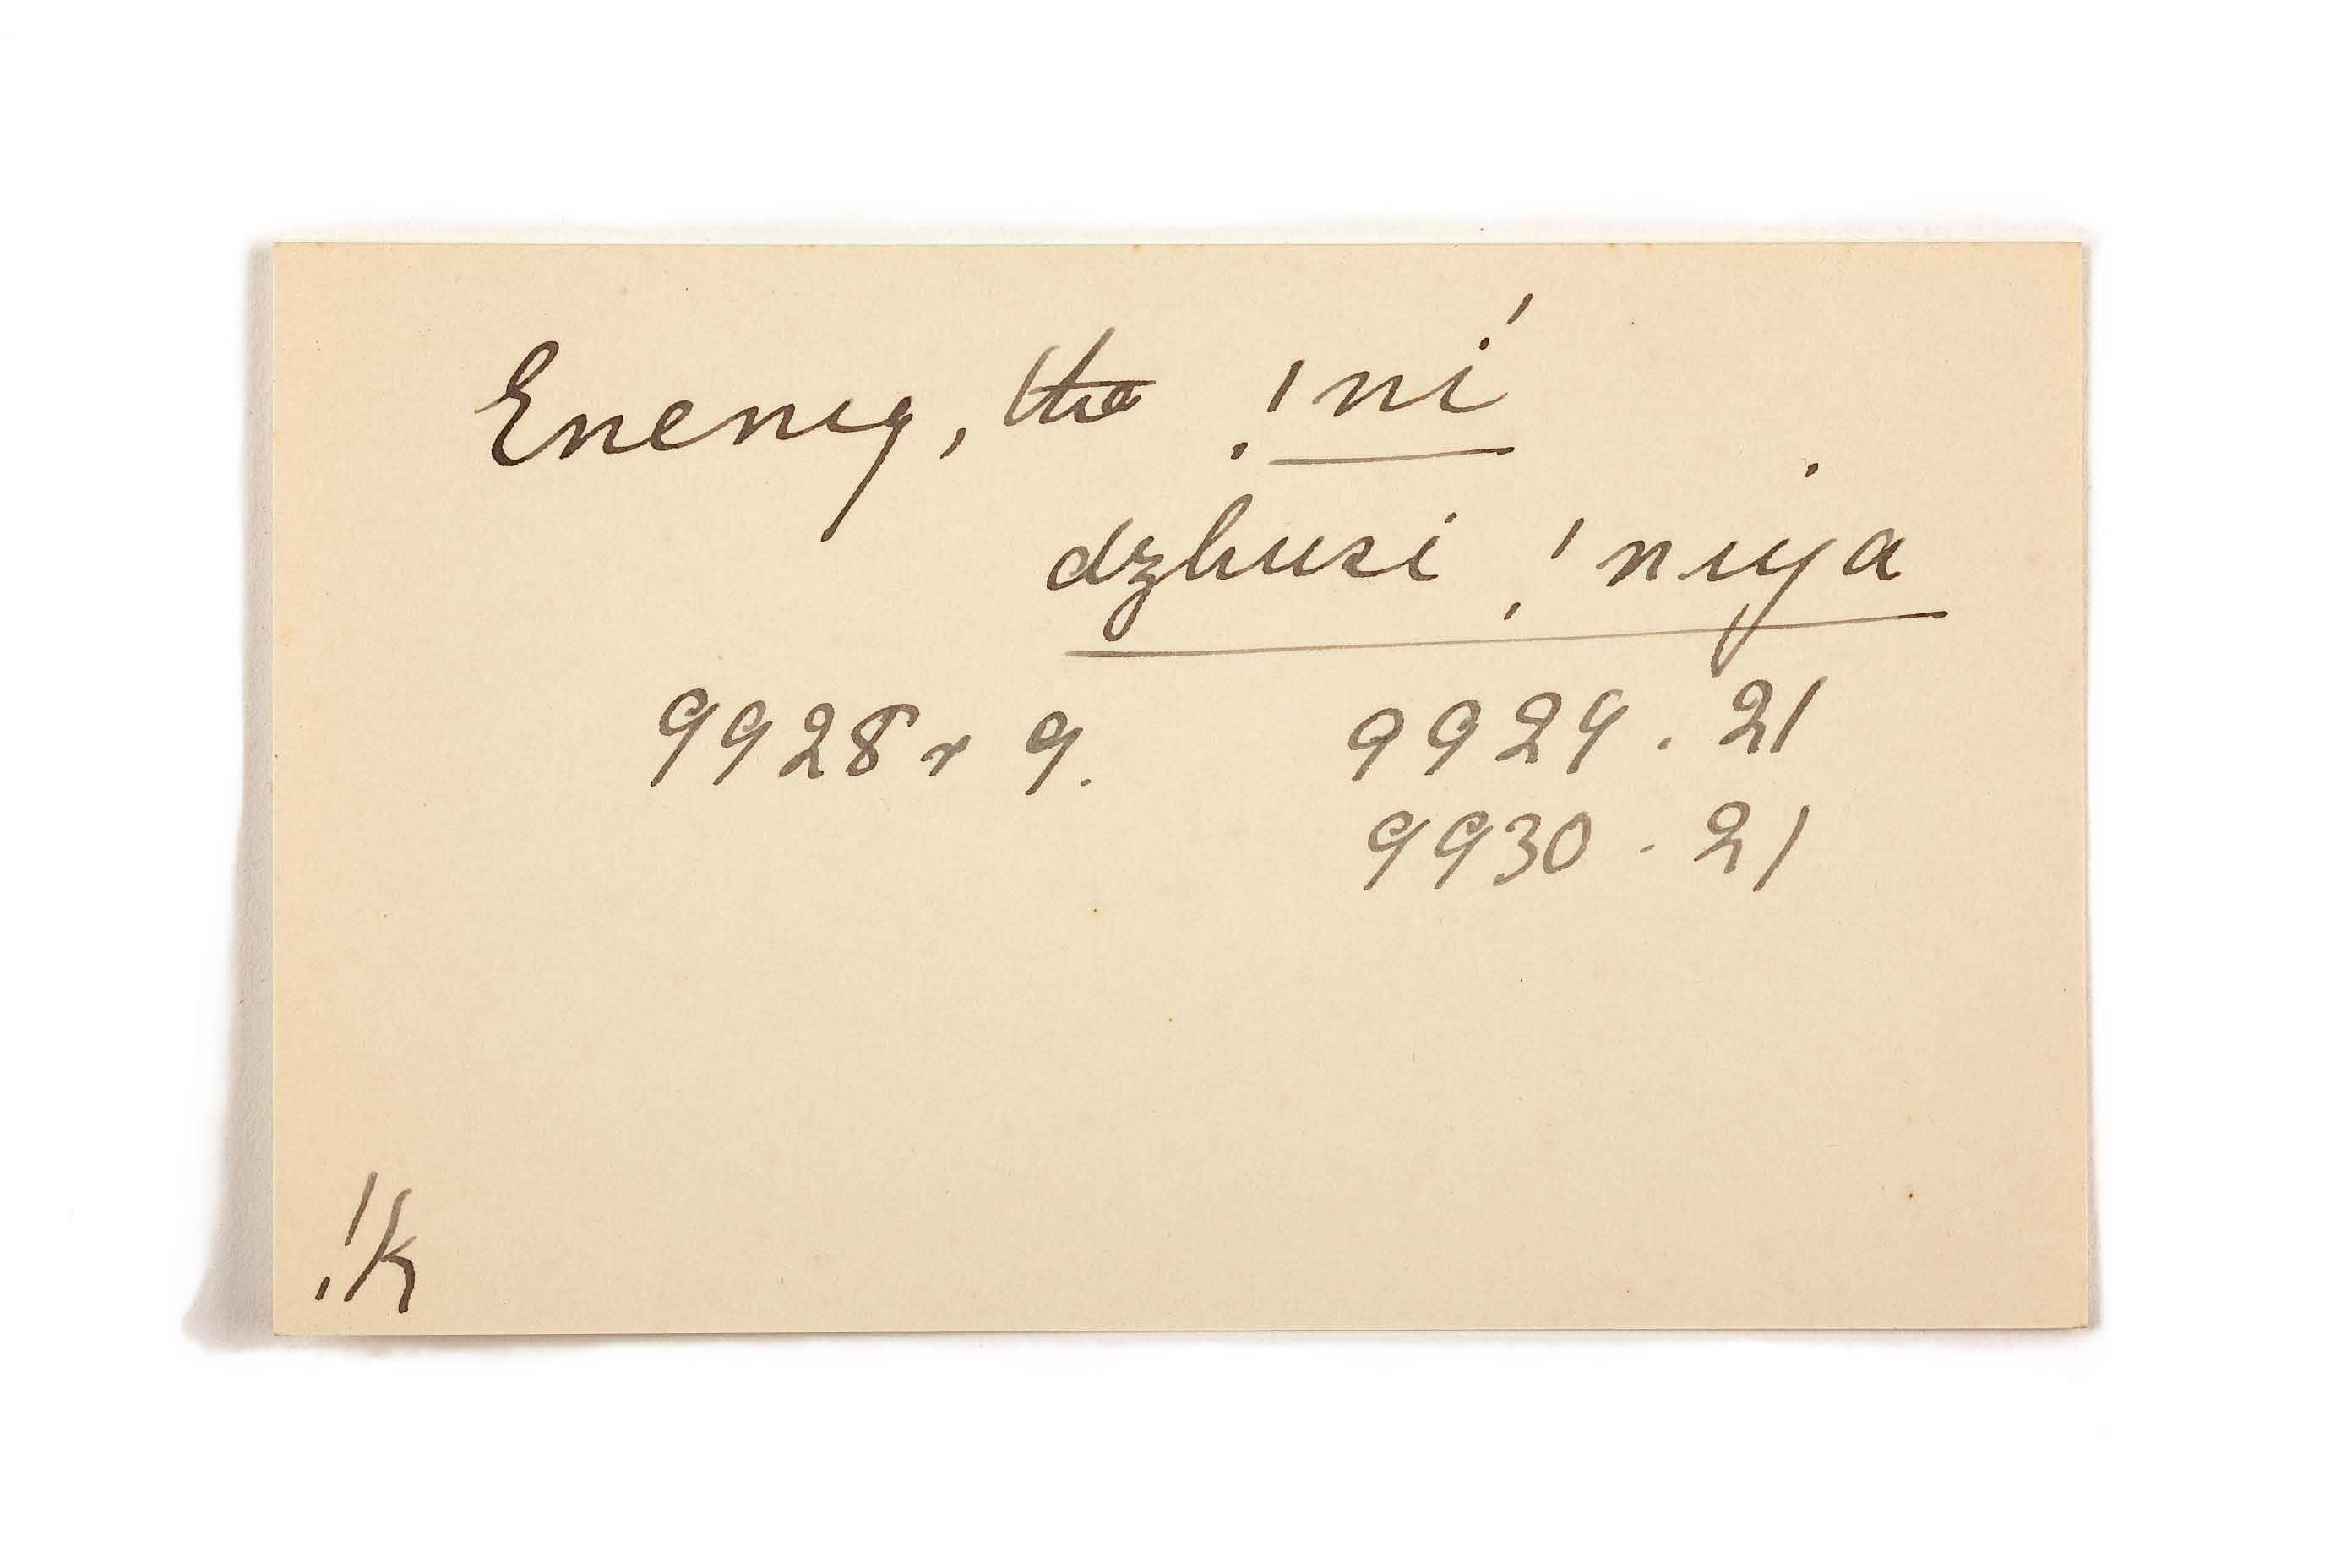 Enemy, the !ní
dzhusi !nuja
9928 + 9. 9929 . 21
9930 . 21
!k